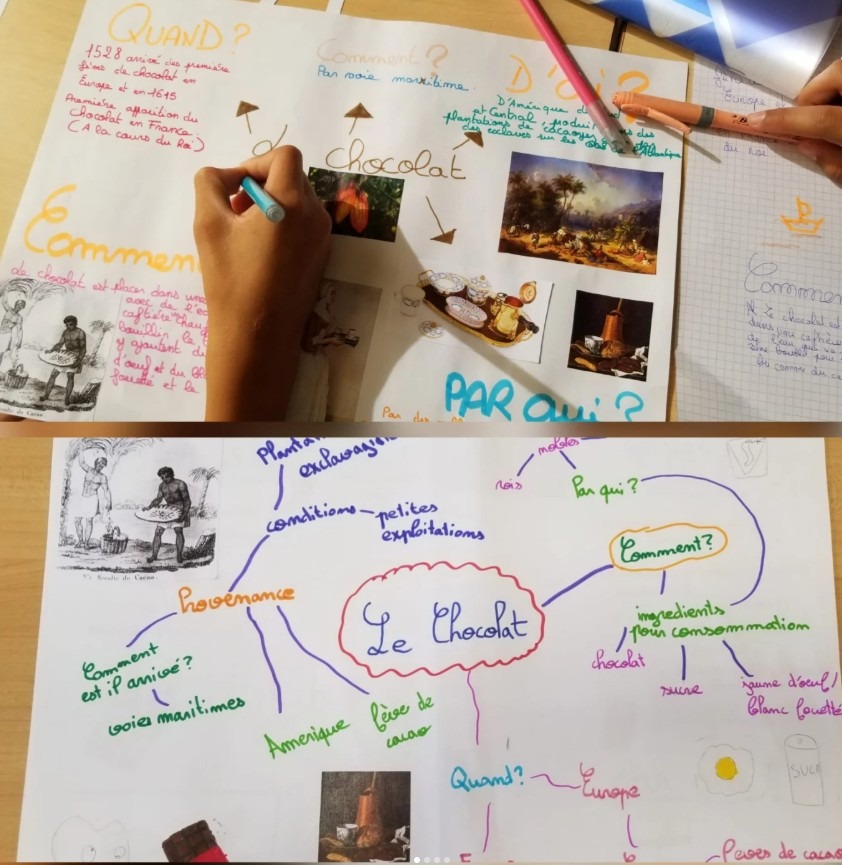 QUAND?
1528 arrivé des première
fèves de chocolat en
Europe et en 1615
Première apparition du
Chocolat en France.
(A la cours du Roi)
Comment?
Par voie maritime.
D'où?
D'Amérique
et Central, produit dans des
plantations de cacaoyer
des esclaves sur les
chocolat
Commen
Le chocolat est placer dans une
avec de l'e
cafetière
bouillir, le
y ajoutent du
d'oeuf et du bl
fouetté et le
Récolte du Cacao.
PAR Qui?
Par
Europe
du roi
Commen
Le chocolat est
dans une cafetière
de l'eau
Planta
esclavagis
conditions
petites
exploitations
Provenance
Comment
est il arrivé?
voies maritimes
Amerique
fèves de
cacao
Le Chocolat
nobles
rois
Par qui?
Comment?
ingredients
pour consommation
chocolat
sucre
jaune d'oeuf/
blanc fouetté
Récolte du Cacao.
Quand?
Europe
SUCR
Feves de cacao